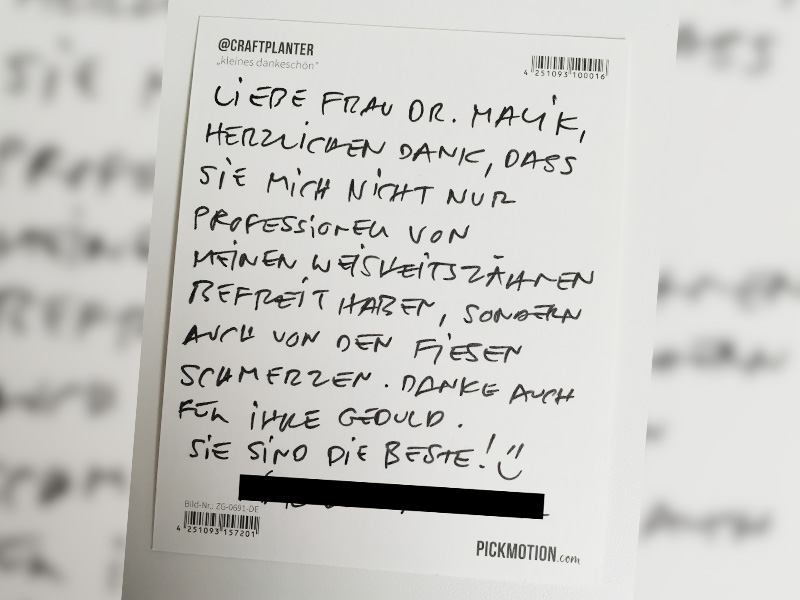 @CRAFTPLANTER
„kleines dankeschön"
4 251093 100016
LIEBE FRAU DR. MALIK,
HERZLICHEN DANK, DASS
SIE MICH NICHT NUR
PROFESSIONELL VON
MEINEN WEISHEITSZÄHNEN
BEFREIT HABEN, SONDERN
AUCH VON DEN FIESEN
SCHMERZEN. DANKE AUCH
FÜR IHRE GEDULD.
SIE SIND DIE BESTE! :)
Bild-Nr.: ZG-0691-DE
4 251093 157201
PICKMOTION.com